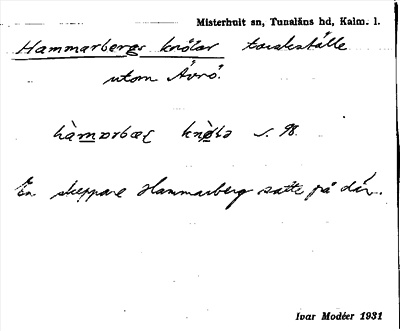 Misterhult sn, Tunaläns hd, Kalm. l.
Hammarbergs knölar torskställe
utom Ävrö.
s. 98.
En skeppare Hammarberg satte på där.
Ivar Modéer 1931